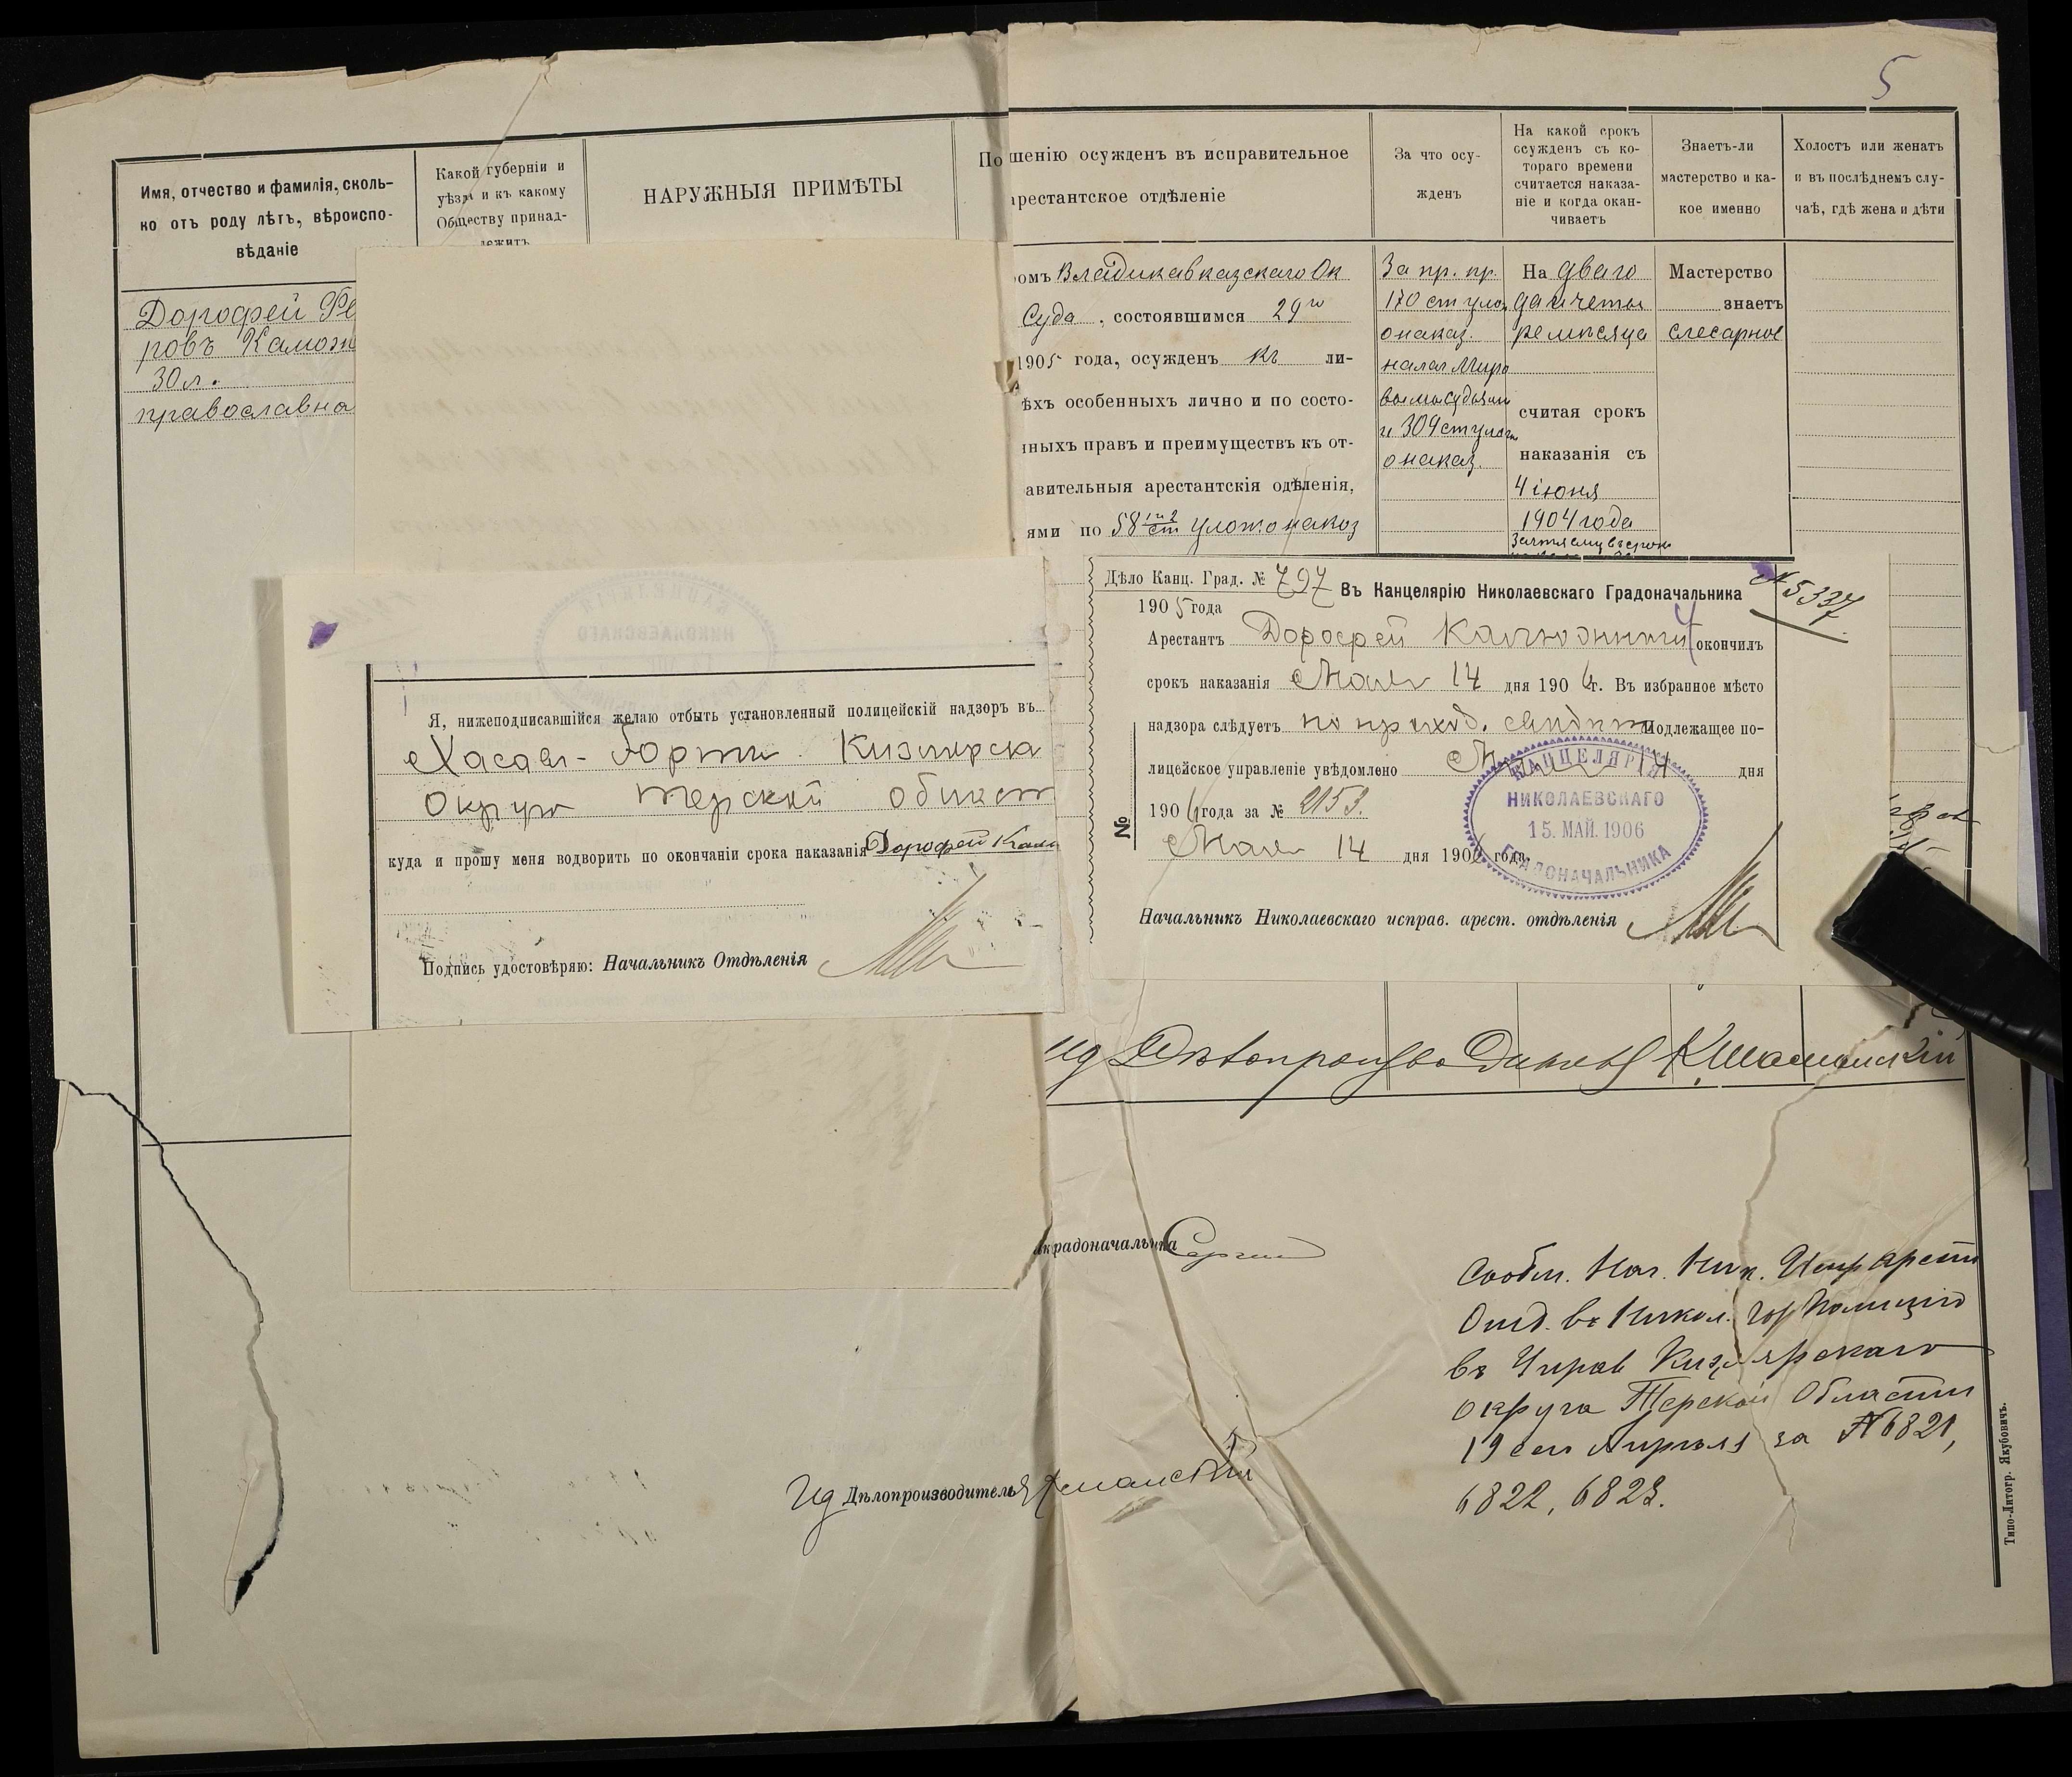 5
Имя, отчество и фамилія, сколь-
ко отъ роду лѣтъ, вѣроиспо-
вѣданіе
Какой губерніи и
уѣзда и къ какому
Обществу принад-
лежитъ
НАРУЖНЫЯ ПРИМѢТЫ
По
шенію осужденъ въ исправительное
арестантское отдѣленіе
За что осу-
жденъ
На какой срокъ
осужденъ съ ко-
тораго времени
считается наказа-
ніе и когда окан-
чиваетъ
Знаетъ-ли
мастерство и ка-
кое именно
Холостъ или женатъ
и въ послѣднемъ слу-
чаѣ, гдѣ жена и дѣти
Дорофей Фе
ровъ Камозн
30 л.
православна
ромъ Владикавказскаго Ок
Суда, состоявшимся 29го
1905 года, осужденъ къ ли-
ѣхъ особенныхъ лично и по состо-
нныхъ правъ и преимуществъ къ от-
авительныя арестантскія одѣленія,
ями по 58 ст улож о наказ
За пр. пр.
170 ст улож
о наказ.
налаг Миро
выми судьями
и 309 ст улож
о наказ.
На два го
да и четы
ре мѣсяца
считая срокъ
наказанія съ
4 іюня
1904 года
Мастерство
знаетъ
слесарное
Я, нижеподписавшійся желаю отбыть установленный полицейскій надзоръ въ
Хасавъ-Юртъ Кизлярск
Округа Терской област
куда и прошу меня водворить по окончаніи срока наказанія Дорофей Кам
Подпись удостовѣряю: Начальникъ Отдѣленія
Дѣло Канц. Град. № 797
1905 года
Въ Канцелярію Николаевскаго Градоначальника
№ 5337
Арестантъ Дорофей окончилъ
срокъ наказанія Мая 14 дня 1906 г. Въ избранное мѣсто
надзора слѣдуетъ по проход. свидѣт Подлежащее по-
лицейское управленіе увѣдомлено Мая 14 дня
1906 года за № 2153.
№
Мая 14 дня 1906 года.
КАНЦЕЛЯРІЯ
НИКОЛАЕВСКАГО
15. МАЙ. 1906
ГРАДОНАЧАЛЬНИКА
Начальникъ Николаевскаго исправ. арест. отдѣленія
Ид Дѣлопроизводитель
радоначальника
Сообщ. Нач. Ник. Испр арест
Отд. въ Никол. гор Полицію
въ Управ Кизлярскаго
округа Терской Области
19 сего Апрѣля за № 6821,
6822, 6823.
Ид Дѣлопроизводитель
Типо-Литогр. Якубовичъ.